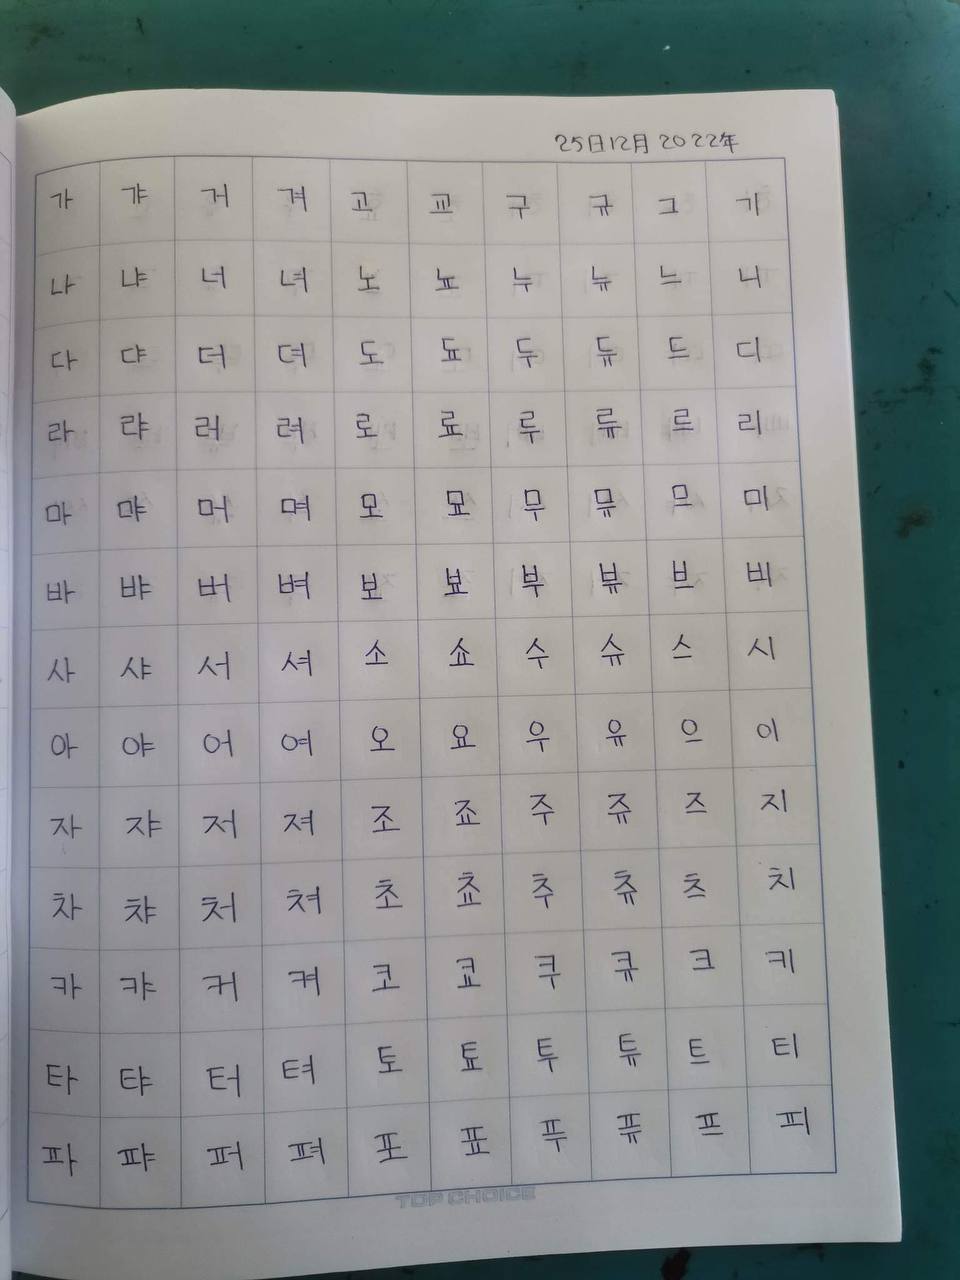 25日12月2022年
가 갸 거 겨 고 교 구 규 그 기
나 냐 너 녀 노 뇨 누 뉴 느 니
다 댜 더 뎌 도 됴 두 듀 드 디
라 랴 러 려 로 료 루 류 르 리
마 먀 머 며 모 묘 무 뮤 므 미
바 뱌 버 벼 보 뵤 부 뷰 브 비
사 샤 서 셔 소 쇼 수 슈 스 시
아 야 어 여 오 요 우 유 으 이
자 쟈 저 져 조 죠 주 쥬 즈 지
차 챠 처 쳐 초 쵸 추 츄 츠 치
카 캬 커 켜 코 쿄 쿠 큐 크 키
타 탸 터 텨 토 툐 투 튜 트 티
파 퍄 퍼 펴 포 표 푸 퓨 프 피
TOP CHOICE